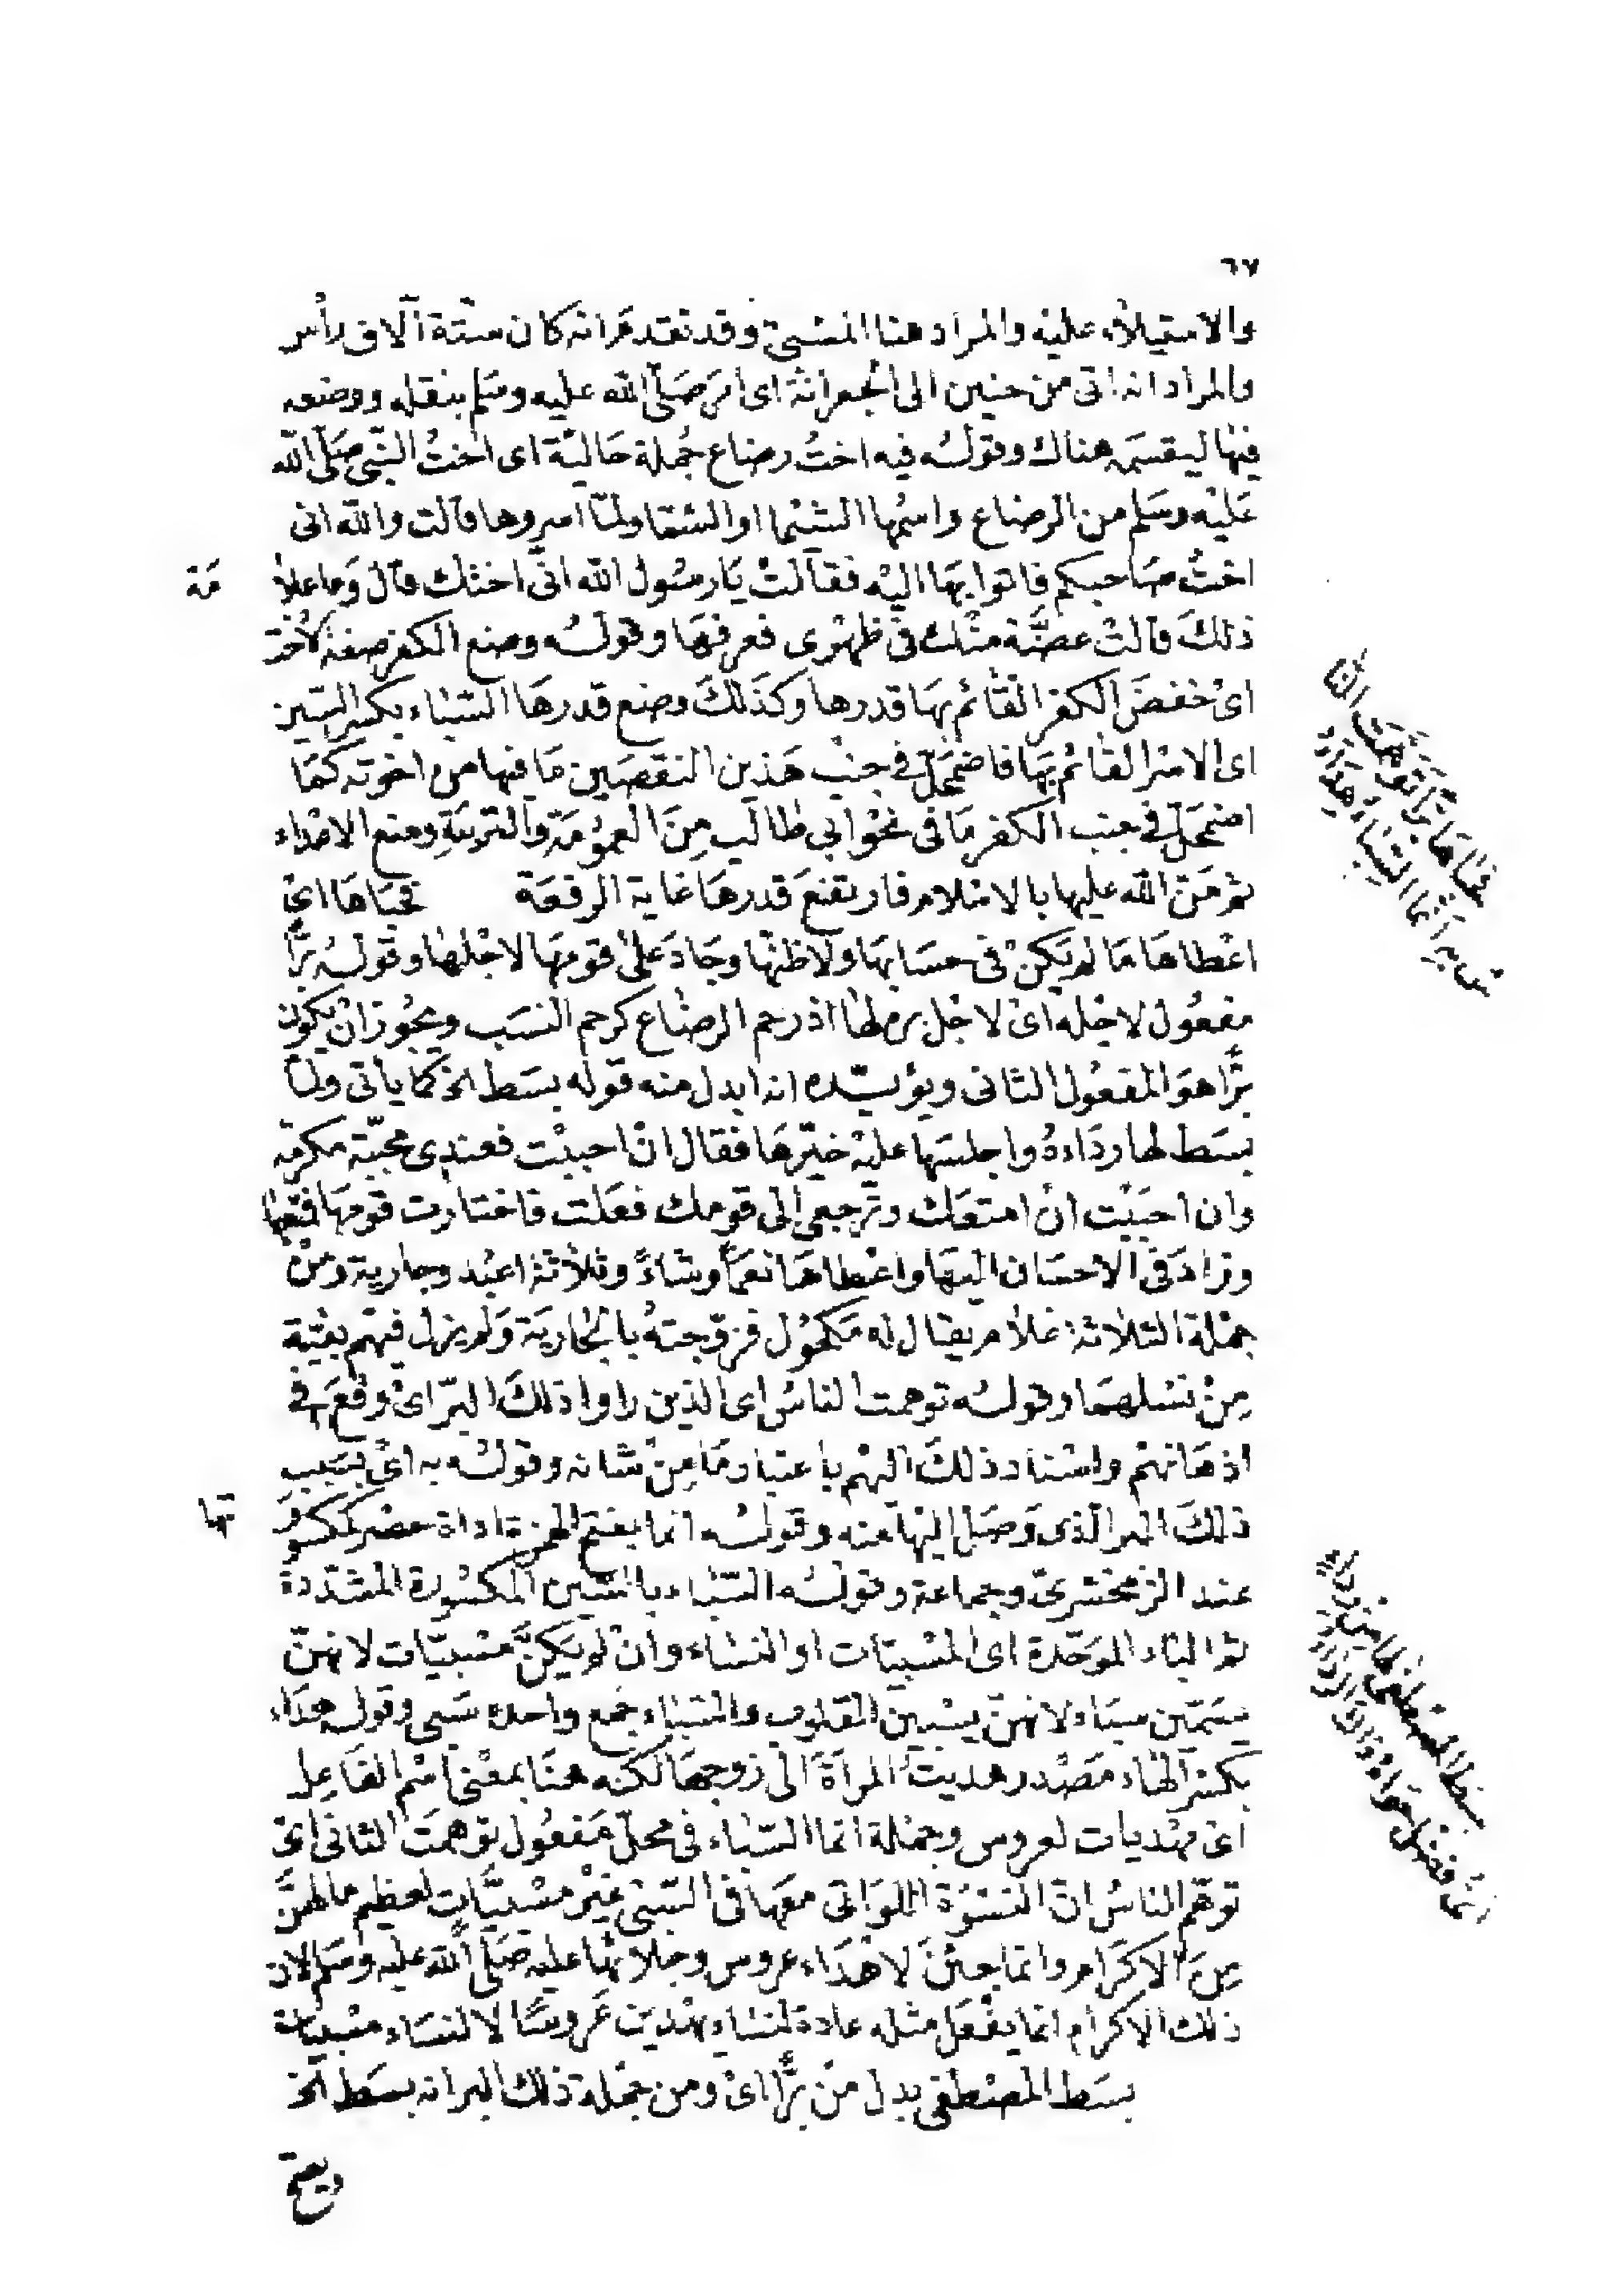 ٦٧
والاستيلاء عليه والمراد هنا المسبي وقد تقدم انه كان ستة آلاف رأس
والمراد انه اتى من حنين الى الجعرانة اى امر صلى الله عليه وسلم بنقله ووضعه
فيها ليقسمه هناك وقوله فيه اخت رضاع جملة حالية اى اخت النبى صلى الله
عليه وسلم من الرضاع واسمها الشيما او الشما ولما اسروها قالت والله انى
اخت صاحبكم فاتوا بها اليه فقالت يا رسول الله انى اختك قال وما علا مة
ذلك قالت عضة منك فى ظهرى فعرفها وقوله وضع الكفر صفة لاخت
اى خفض الكفر القائم بها قدرها وكذلك وضع قدرها السباء بكسر السين
اى الاسر القائم بها فاضمحل فى جنب هذين النقصين ما فيها من اخوته كما
اضمحل فى جنب الكفر ما فى نحو ابى طالب من العمومة والتربية ومنع الاعداء
ثم من الله عليها بالاسلام فارتفع قدرها غاية الرفعة فحباها اى
اعطاها ما لم يكن فى حسابها ولا ظنها وجاد على قومها لاجلها وقوله برا
مفعول لاجله اى لاجل برملها اذ رحم الرضاع كرحم النسب ويجوز ان يكون
برا هو المفعول الثانى ويؤيده انه ابدل منه قوله بسط الخ كما ياتى ولما
بسط لها رداءه واجلسها عليه خيرها فقال ان احببت فعندى محببة مكرمة
وان احببت ان امتعك وترجعى الى قومك فعلت فاختارت قومها فمتعها
وزاد فى الاحسان اليها واعطاها نعما وشاءً وثلاثة اعبد وجارية ومن
جملة الثلاثة غلام يقال له مكحول فزوجته بالجارية ولم يزل فيهم بقية
من نسلهما وقوله توهمت الناس اى الذين راوا ذلك البر اى وقع فى
اذهانهم واسناد ذلك اليهم باعتبار ما من شانه وقوله به اى بسبب
ذلك البر الذى وصل اليها منه وقوله انما بفتح الهمزة اداة حصر كمكسور تها
عند الزمخشرى وجماعة وقوله السباء بالسين المكسورة المشددة
ثم الباء الموحدة اى المسبيات او النساء وان لم يكن مسبيات لانهن
يسمين سباء لانهن يسبين القلوب والسباء جمع واحده سبى وقوله هداء
بكسر الهاء مصدر هديت المرأة الى زوجها لكنه هنا بمعنى اسم الفاعل
اى مهديات لعروس وجملة انما السباء فى محل مفعول توهمت الثانى اى
توهم الناس ان النسوة اللواتى معها فى السبى غير مسبيات لعظيم ما لهن
من الاكرام وانما جئن لاهداء عروس وجلائها عليه صلى الله عليه وسلم لان
ذلك الاكرام انما يفعل مثله عادة لنساء يهدين عروسا لا لنساء مسبيات
بسط المصطفى بدل من برا اى ومن جملة ذلك البر انه بسط الخ
ويصح
فحباها برا توهمت النا
س به انما السباء هداء
بسط المصطفى لها من رداء
اى فضل حواه ذاك الرداء